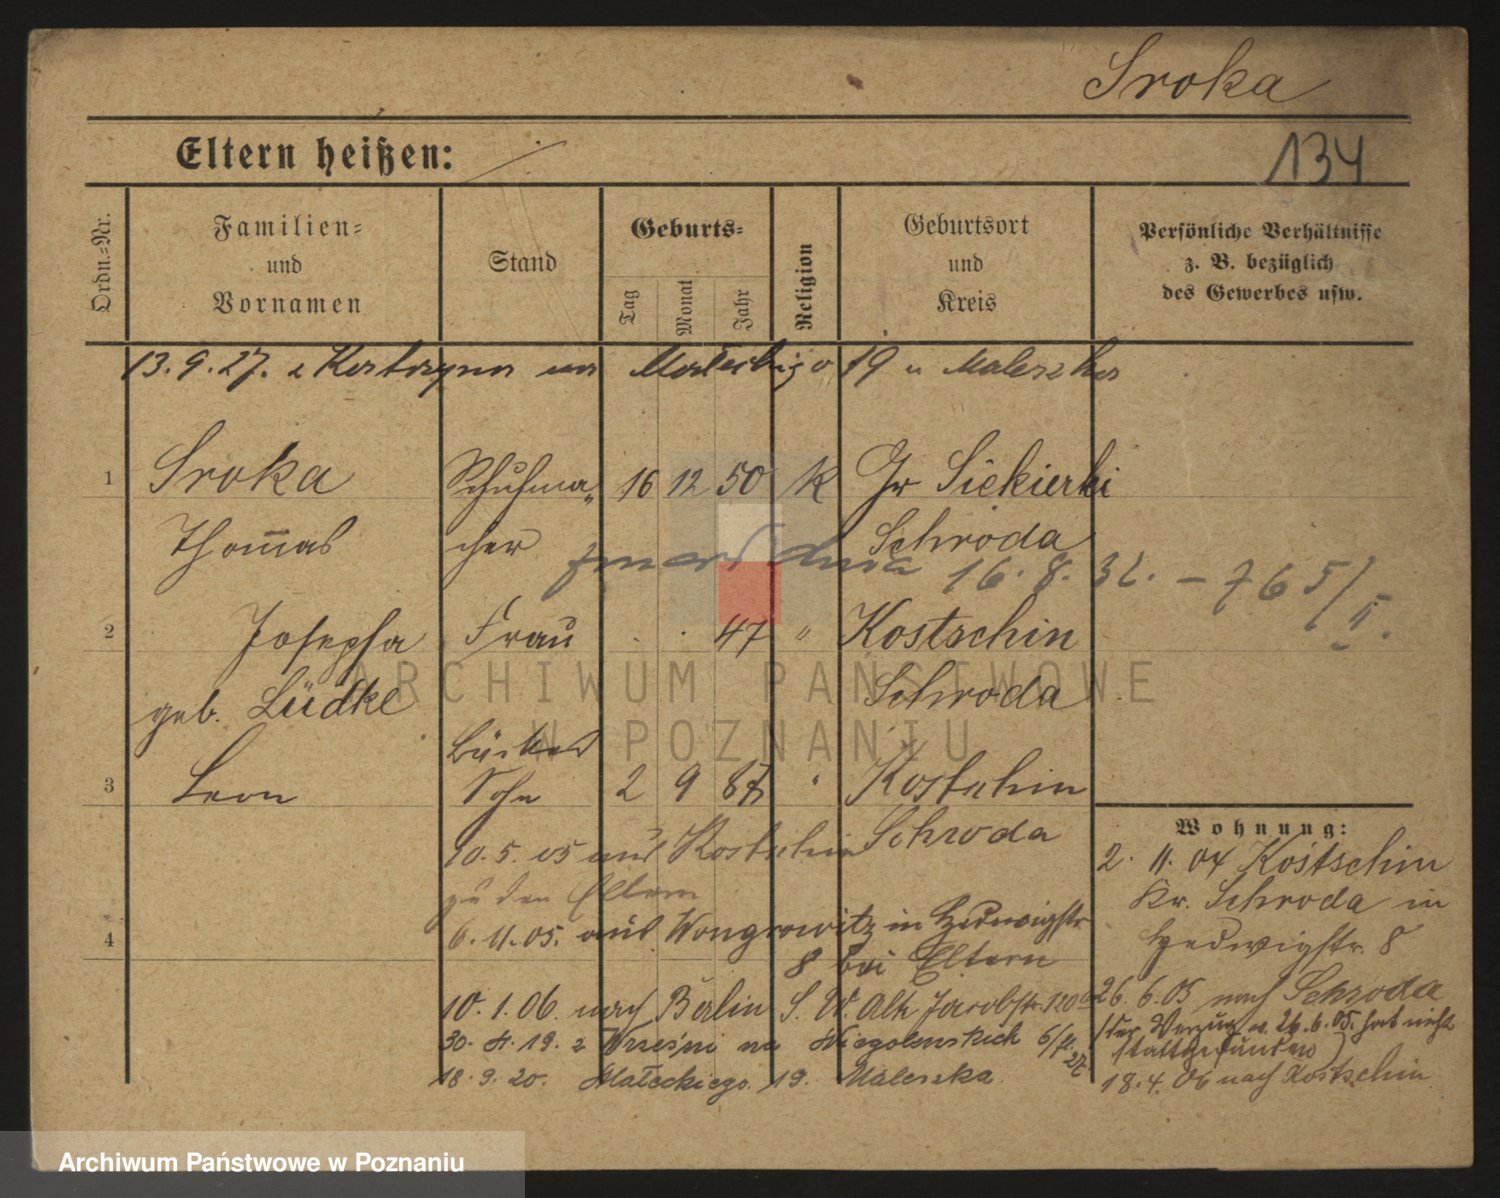 Sroka
134
Eltern heißen:
Ordn.-Nr.
Familien-
und
Vornamen
Stand
Geburts-
Tag
Monat
Jahr
Religion
Geburtsort
und
Kreis
Persönliche Verhältnisse
z. B. bezüglich
des Gewerbes usw.
13.9.27. z Katarzyna na Małeckiego 19 u Maleszka
1 Sroka Schuhma- 16 12 50 K Gr Siekierki
Thomas cher Schroda
zmarł dnia 16.8.32. – 765/II.
2 Josepha Frau 47 " Kostschin
geb. Lüdke Schroda
Bäcker
3 Leon Sohn 2 9 87 " Kostschin
Schroda
10.5.05 aus Kostschin
zu den Eltern
4 6.11.05. aus Wongrowitz in Hedwigstr
8 bei Eltern
10.1.06. nach Berlin S. W. Alte Jacobstr. 120
30. 4. 19. z Wrześni na 6/7.
18.9.20. Małeckiego 19. Maleszka
Wohnung:
2. 11. 04 Kostschin
Kr. Schroda in
Hedwigstr. 8
26.6.05 nach Schroda
(der Verzug v. 26.6.05. hat nicht
stattgefunden)
18.4.06 nach Kostschin
ARCHIWUM PAŃSTWOWE
W POZNANIU
Archiwum Państwowe w Poznaniu